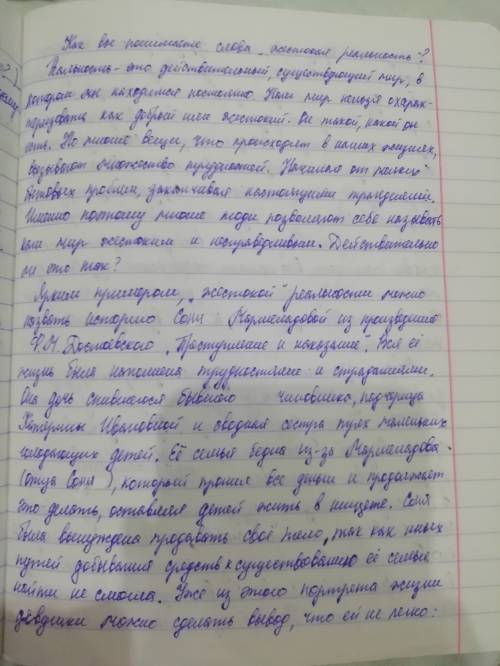 Как вы понимаете слова „жестокая реальность"?
Реальность - это действительный, существующий мир, в
котором мы находимся постоянно. Наш мир нельзя охарак-
теризовать как добрый или жестокий. Он такой, какой он
есть. Но многие вещи, что происходят в наших жизнях,
вызывают множество трудностей. Начиная от
бытовых проблем, заканчивая настоящими трагедиями.
Именно поэтому многие люди позволяют себе называть
наш мир жестоким и несправедливым. Действительно
ли это так?
Ярким примером „жестокой" реальности можно
назвать историю Сони Мармеладовой из произведения
Ф.М. Достоевского „Преступление и наказание". Вся её
жизнь была наполнена трудностями и страданиями.
Она дочь спившегося бывшего чиновника, падчерица
Катерины Ивановной и сводная сестра трёх маленьких
голодающих детей. Её семья бедна из-за Мармеладова
(отца Сони), который пропил все деньги и продолжает
это делать, оставляя детей жить в нищете. Соня
была вынуждена продавать своё тело, так как иных
путей добывания средств к существованию её семья
найти не смогла. Уже из этого портрета жизни
девушки можно сделать вывод, что ей не легко: